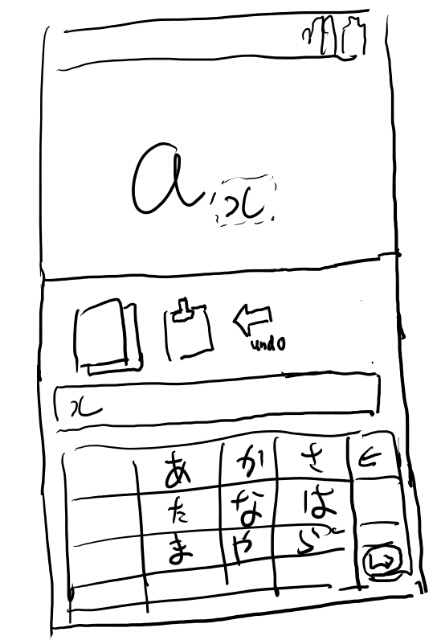 a,x
undo
x
あ か さ ←
た な は
ま や ら